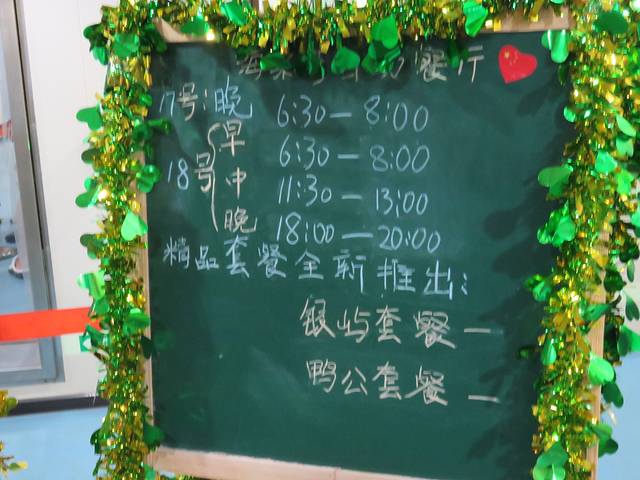 餐厅
17号:晚 6:30—8:00
18号 早 6:30—8:00
中 11:30—13:00
晚 18:00—20:00
精品套餐全新推出:
银屿套餐一
鸭公套餐一